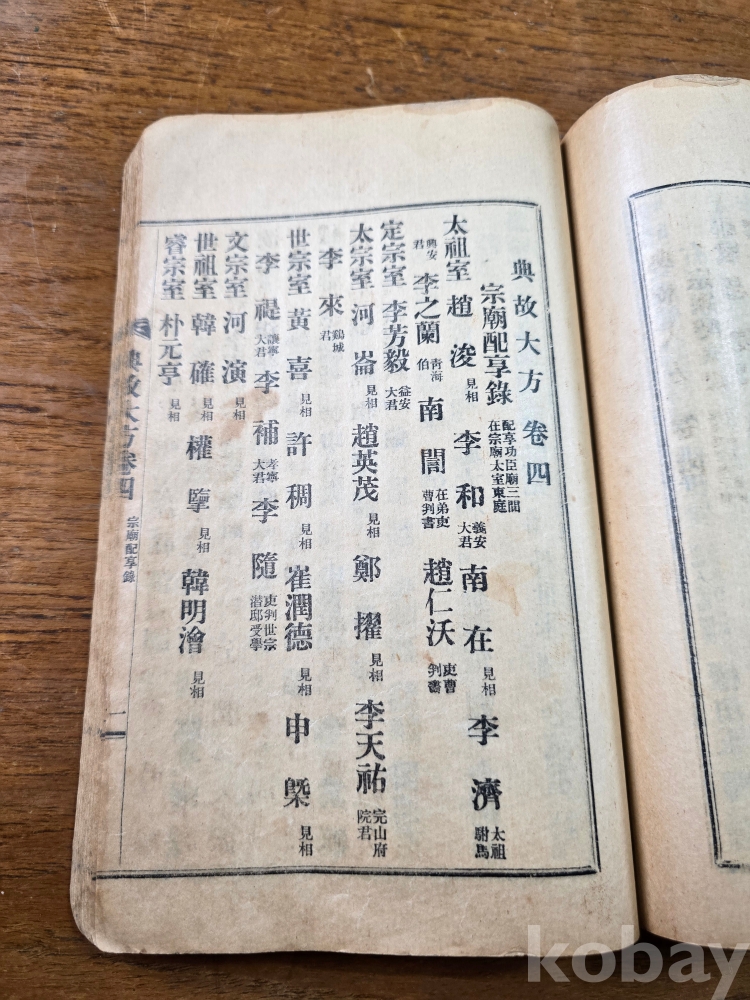 典故大方 卷四
宗廟配享錄 配享功臣廟三間在宗廟太室東庭
太祖室 趙浚 見相 李和 義安大君 南在 見相 李濟 太祖駙馬
興安君 李之蘭 靑海伯 南誾 在弟吏曹判書 趙仁沃 吏曹判書
定宗室 李芳毅 益安大君
太宗室 河崙 見相 趙英茂 見相 鄭擢 見相 李天祐 完山府院君
李來 鷄城君
世宗室 黃喜 見相 許稠 見相 崔潤德 見相 申槩 見相
李禔 讓寧大君 李補 孝寧大君 李隨 吏判世宗潛邸受學
文宗室 河演 見相
世祖室 韓確 見相 權擥 見相 韓明澮 見相
睿宗室 朴元亨 見相
典故大方卷四 宗廟配享錄 一
kobay